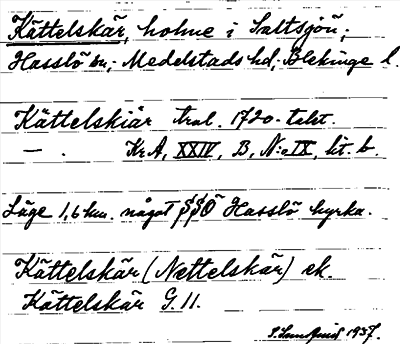 Kättelskär, holme i Saltsjön;
Hasslö sn, Medelstads hd, Blekinge l.
Kättelskiär tral. 1720-talet.
— . KrA, XXIV, B, N:o IX, lit. b.
Läge 1,6 km. något SSÖ Hasslö kyrka.
Kättelskär (Nettelskär) ek.
Kättelskär G. 11.
1937.